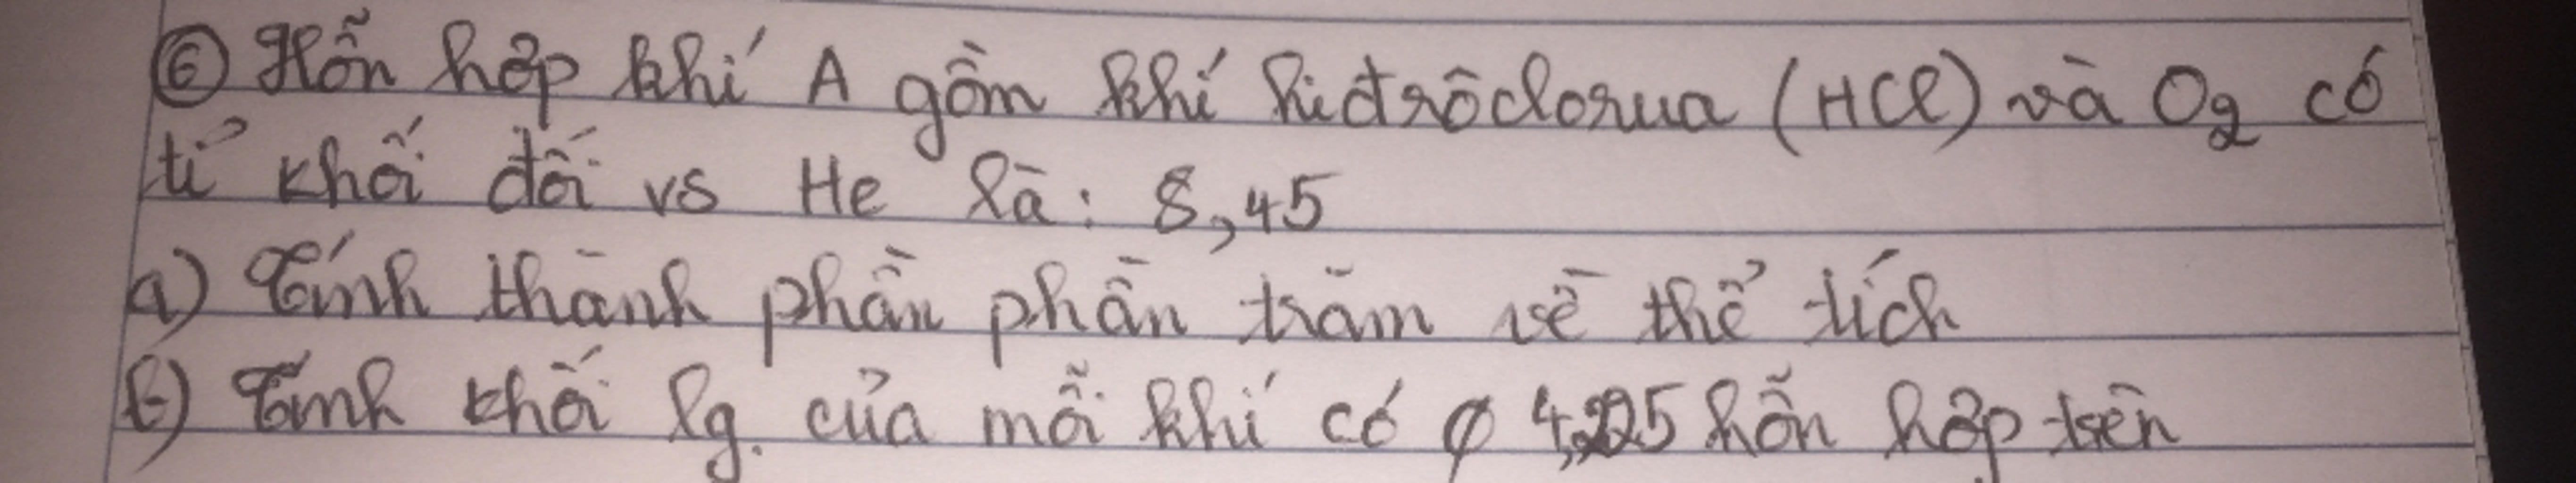 ⑥ Hỗn hợp khí A gồm khí hiđrôclorua (HCl) và O₂ có
tỉ khối đối vs He là: 8,45
a) Tính thành phần phần trăm về thể tích
b) Tính khối lg. của mỗi khí có 4,225 hỗn hợp trên